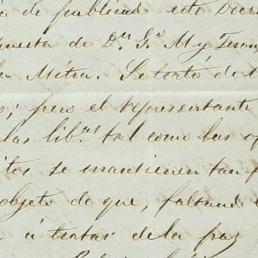 de publicado este Decre
puesta de Dn. Gs. M y
la Mitra. Se trató de
; pero el representante
las libs. tal como las
tos, se mantienen tan
objeto de que, faltand
a tratar de la paz